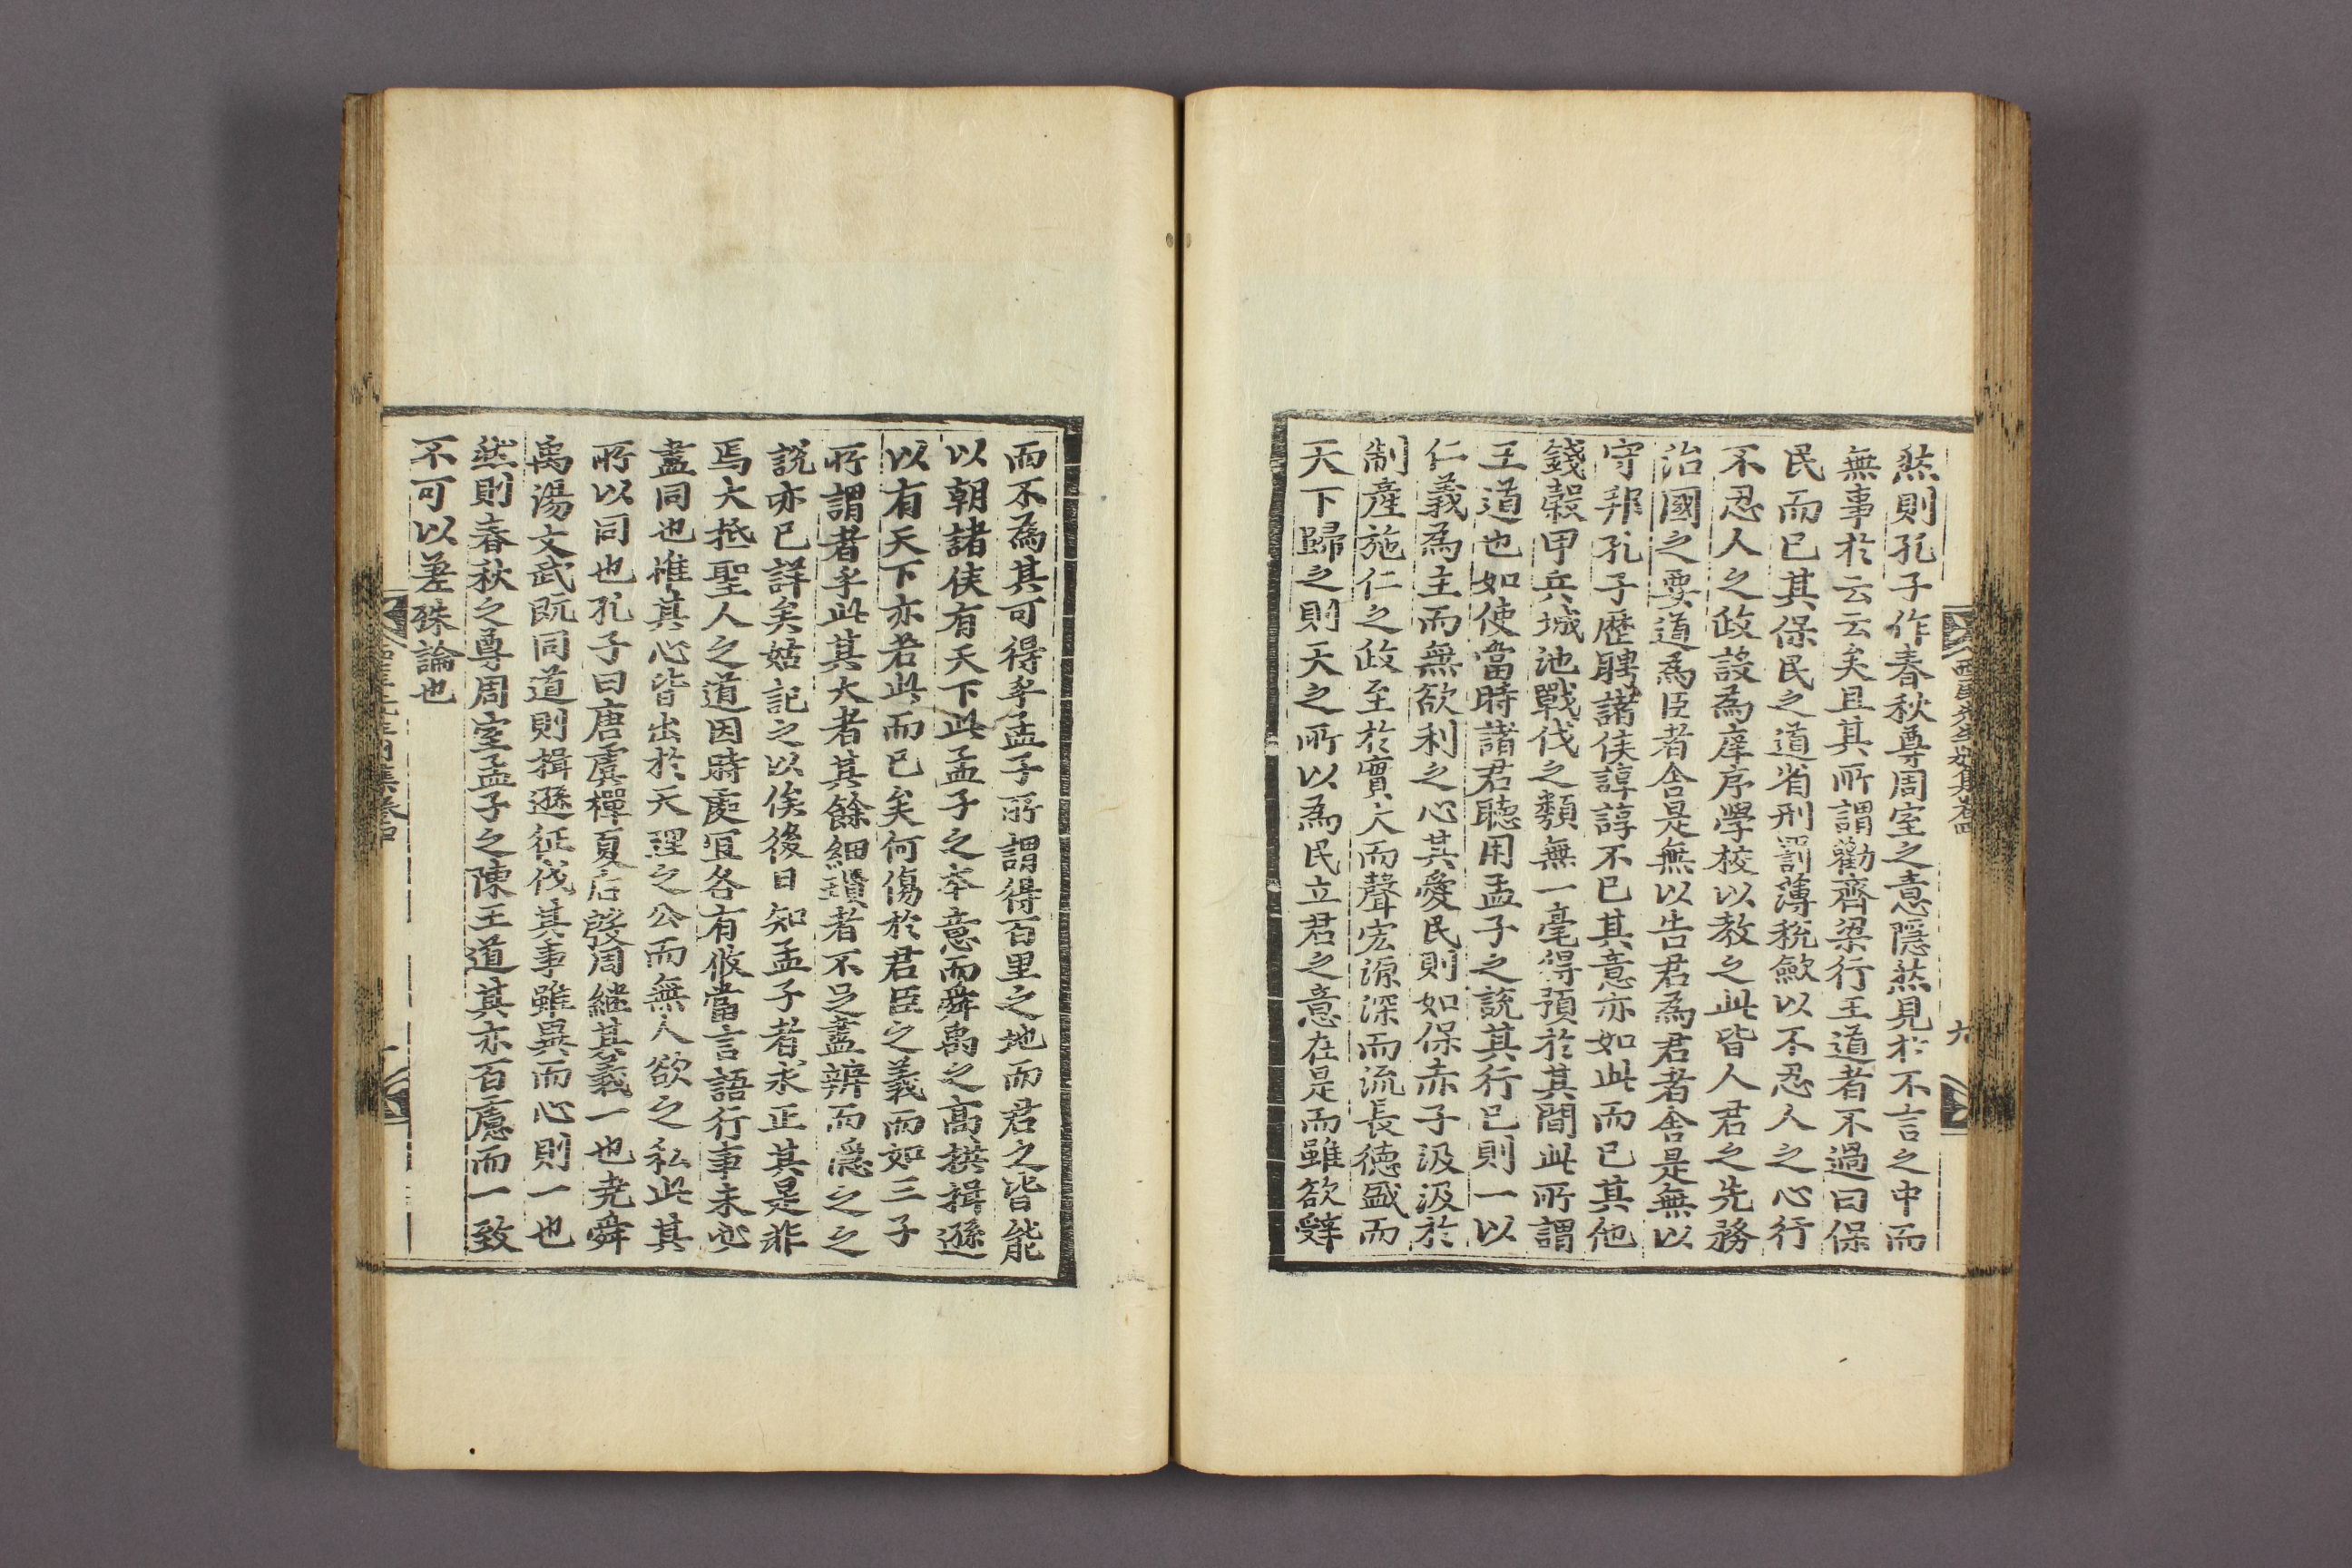 然則孔子作春秋尊周室之意隱然見於不言之中而
無事於云云矣且其所謂勸齊梁行王道者不過曰保
民而已其保民之道省刑罰薄稅斂以不忍人之心行
不忍人之政設為庠序學校以教之此皆人君之先務
治國之要道為臣者舍是無以告君為君者舍是無以
守邦孔子歷聘諸侯諄諄不已其意亦如此而已其他
錢穀甲兵城池戰伐之類無一毫得預於其間此所謂
王道也如使當時諸君聽用孟子之說其行已則一以
仁義為主而無欲利之心其愛民則如保赤子汲汲於
制產施仁之政至於實大而聲宏源深而流長德盛而
天下歸之則天之所以為民立君之意在是而雖欲辭
而不為其可得乎孟子所謂得百里之地而君之皆能
以朝諸侯有天下此孟子之本意而舜禹之高拱揖遜
以有天下亦若此而已矣何傷於君臣之義而如三子
所謂者乎此其大者其餘細瑣者不足盡辨而隱之之
說亦已詳矣姑記之以俟後日知孟子者求正其是非
焉大抵聖人之道因時處宜各有攸當言語行事未必
盡同也惟其心皆出於天理之公而無人欲之私此其
所以同也孔子曰唐虞禪夏后殷周繼其義一也堯舜
禹湯文武既同道則揖遜征伐其事雖異而心則一也
然則春秋之尊周室孟子之陳王道其亦百慮而一致
不可以差殊論也